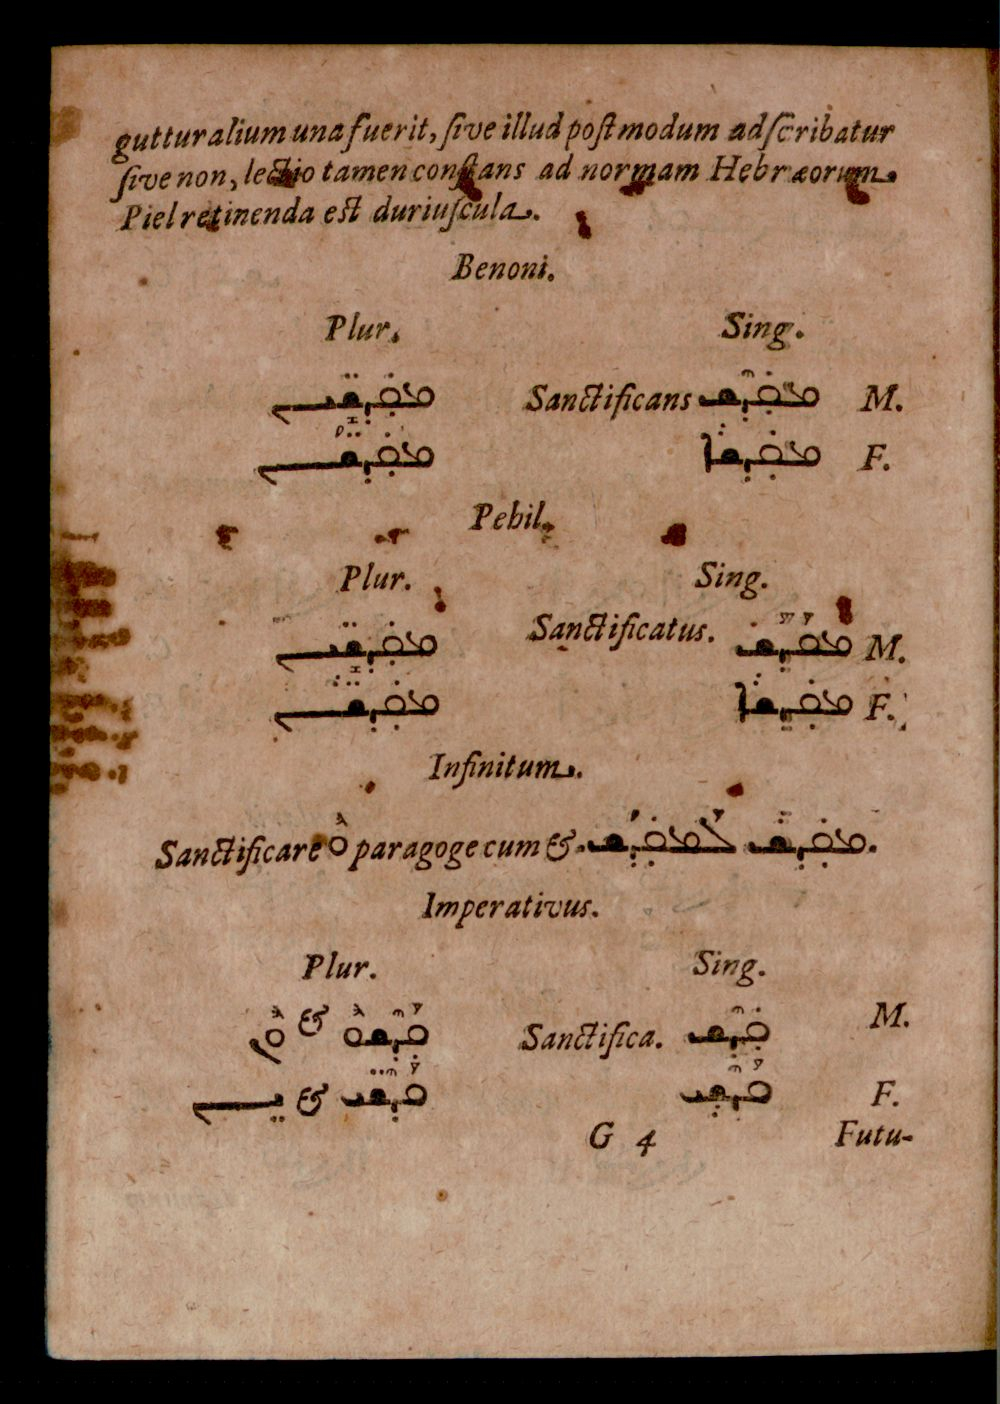 gutturalium una fuerit, sive illud postmodum adscribatur
sive non, lectio tamen constans ad normam Hebræorum
Piel retinenda est duriuscula.
Benoni.
Plur. Sing.
ܡܩܕܫܝܢ Sanctificans ܡܩܕܫ M.
ܡܩܕܫܢ ܡܩܕܫܐ F.
Pehil.
Plur. Sing.
ܡܩܕܫܝܢ Sanctificatus. ܡܩܕܫ M.
ܡܩܕܫܢ ܡܩܕܫܐ F.
Infinitum.
Sanctificare ܘ paragoge cum & ܡܩܕܫ ܠܡܩܕܫ.
Imperativus.
Plur. Sing.
ܩܕܫܘ & ܘܢ Sanctifica. ܩܕܫ M.
ܩܕܫܝ & ܝܢ ܩܕܫܝ F.
G 4 Futu-